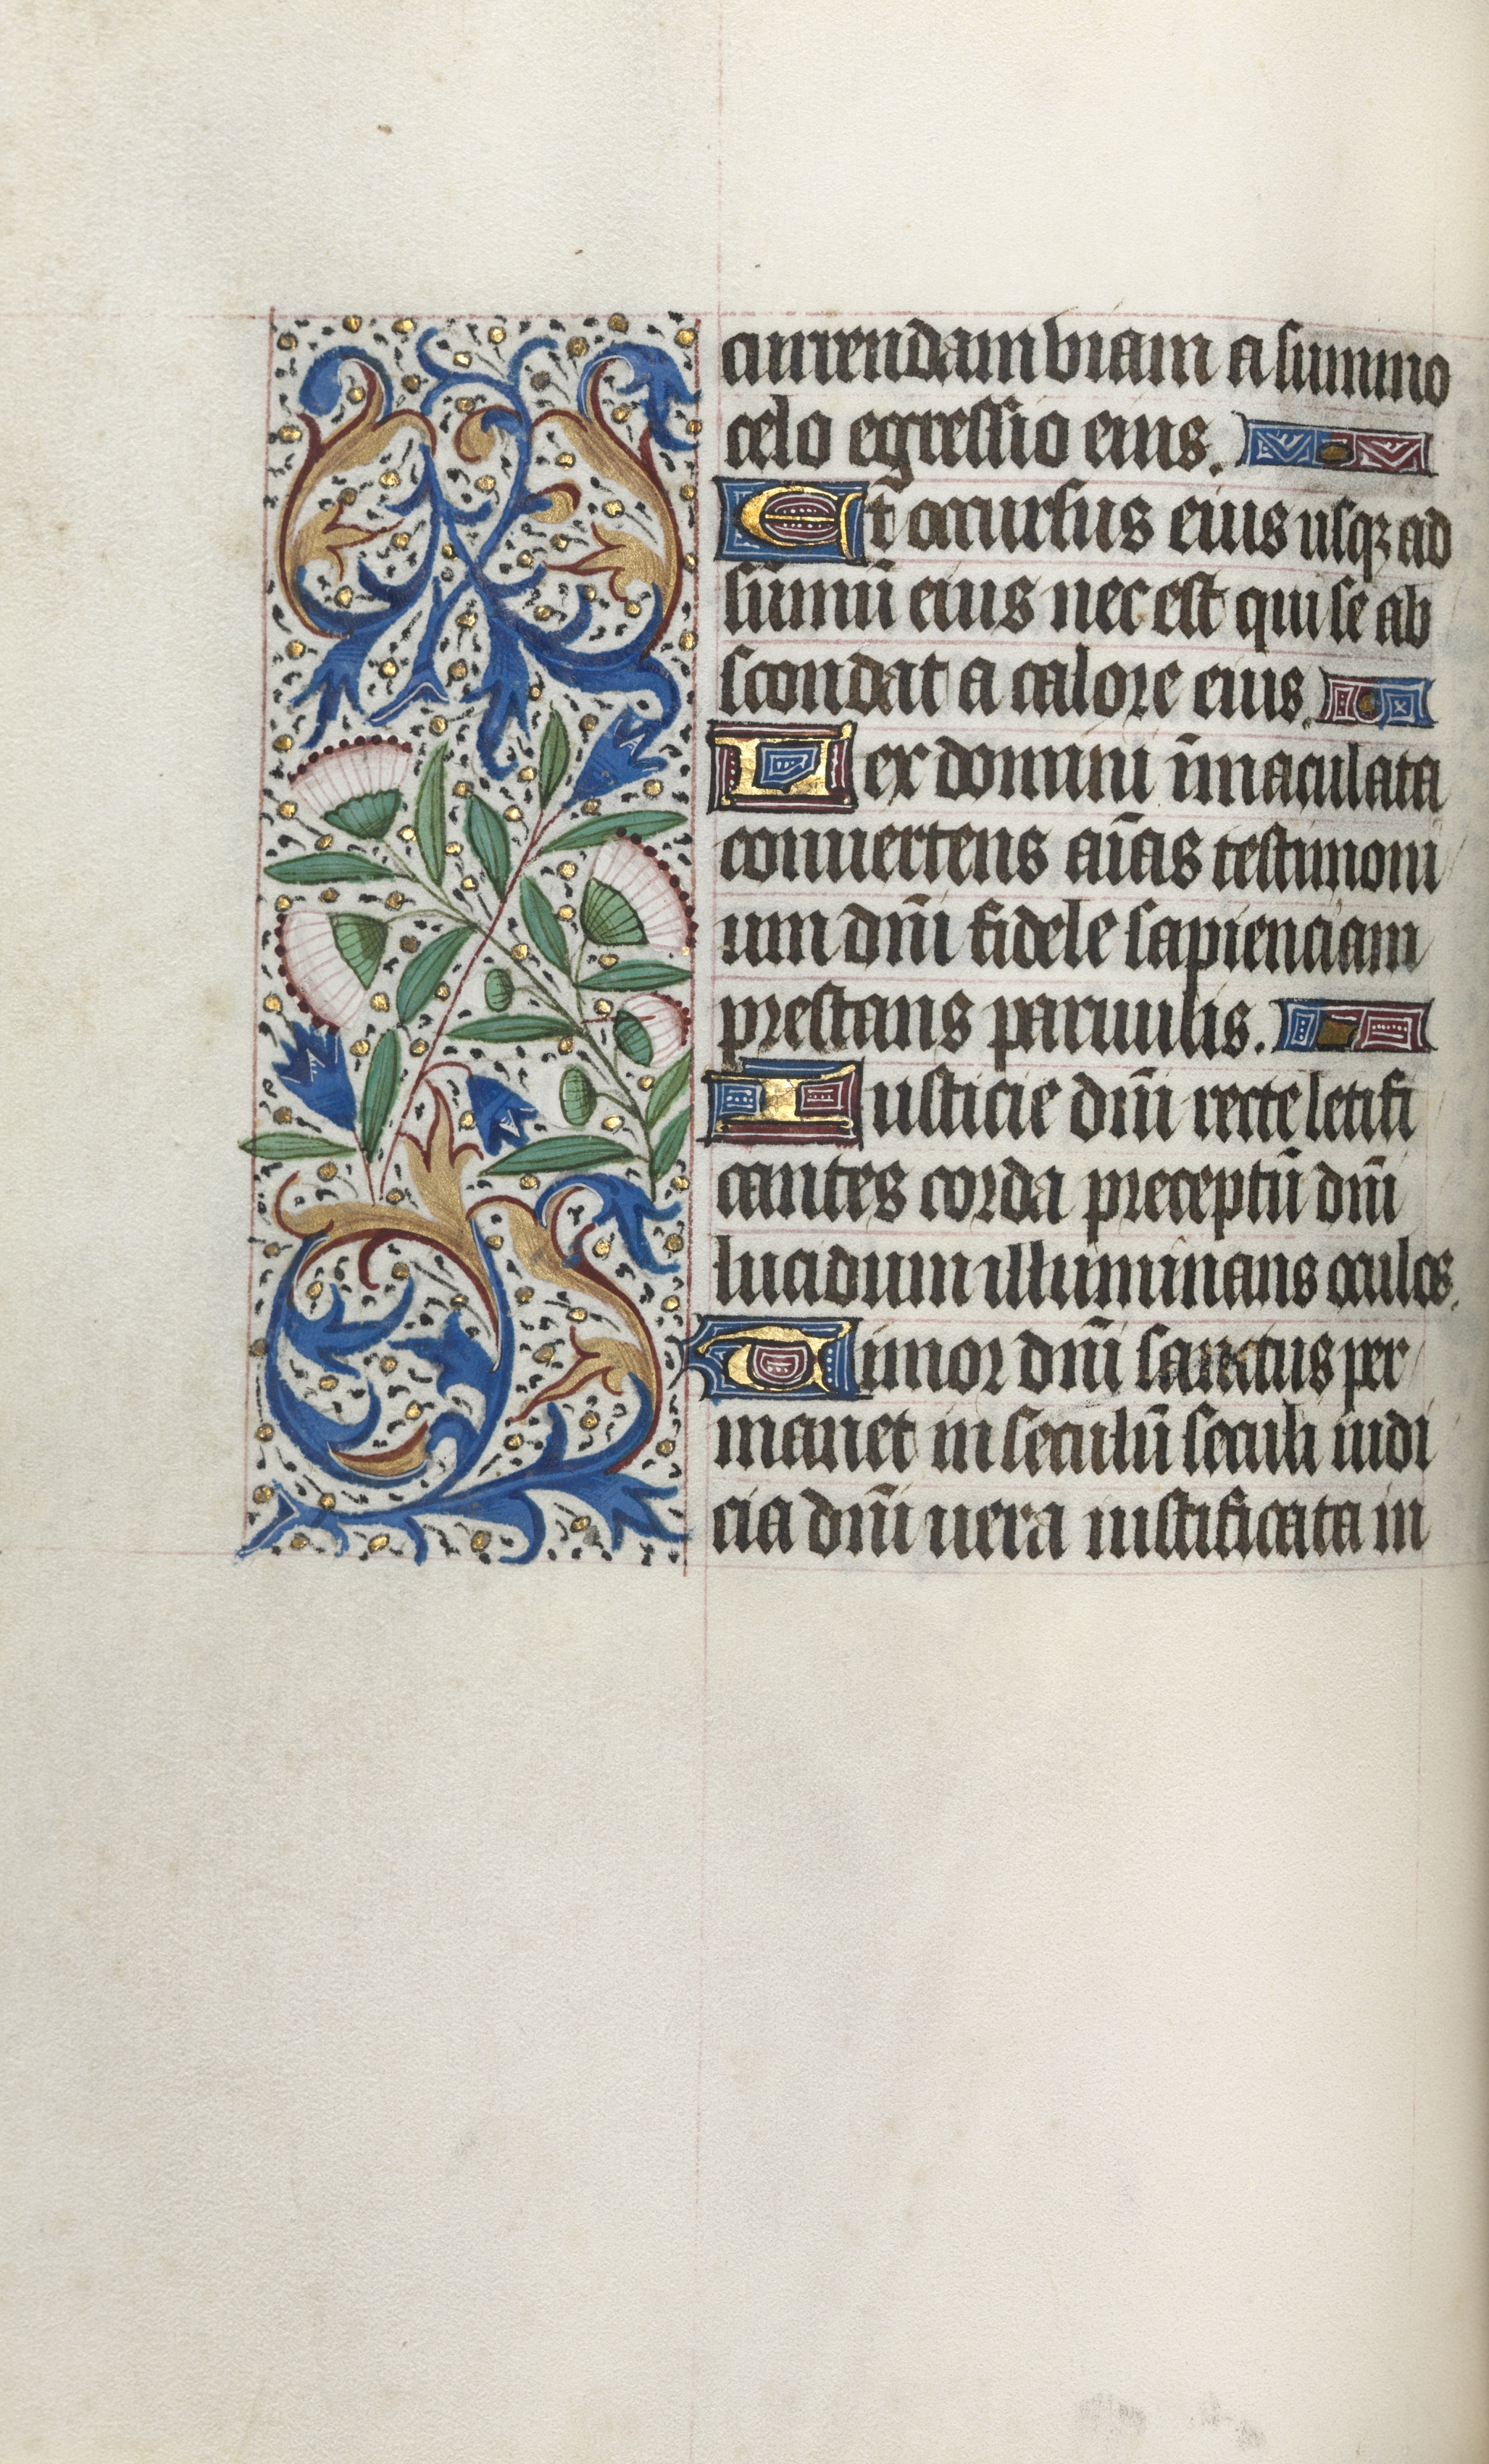 currendam viam a summo
celo egressio eius.
Et occursus eius usqꝫ ad
sūmū eius nec est qui se ab
scondat a calore eius.
Lex domini īmaculata
convertens aīas testimoni
um dn̄i fidele sapienciam
prestans parvulis.
Iusticie dn̄i recte letifi
cantes corda preceptū dn̄i
lucidum illuminans oculos.
Timor dn̄i sanctus per
manet in seculū seculi iudi
cia dn̄i vera iustificata in